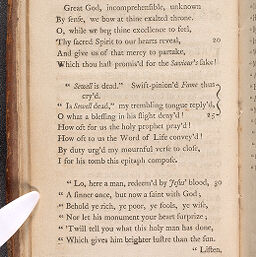 Great God, incomprehensible, unknown
By sense, we bow at thine exalted throne.
O, while we beg thine excellence to feel,
Thy sacred Spirit to our hearts reveal, 20
And give us of that mercy to partake,
Which thou hast promis'd for the Saviour's sake!
"Sewell is dead." Swift-pinion'd Fame thus
cry'd.
"Is Sewell dead," my trembling tongue reply'd,
O what a blessing in his flight deny'd! 25
How oft for us the holy prophet pray'd!
How oft to us the Word of Life convey'd!
By duty urg'd my mournful verse to close,
I for his tomb this epitaph compose.
"Lo, here a man, redeem'd by Jesus' blood, 30
"A sinner once, but now a saint with God;
"Behold ye rich, ye poor, ye fools, ye wise,
"Nor let his monument your heart surprize;
"'Twill tell you what this holy man has done,
"Which gives him brighter lustre than the sun.
"Listen,